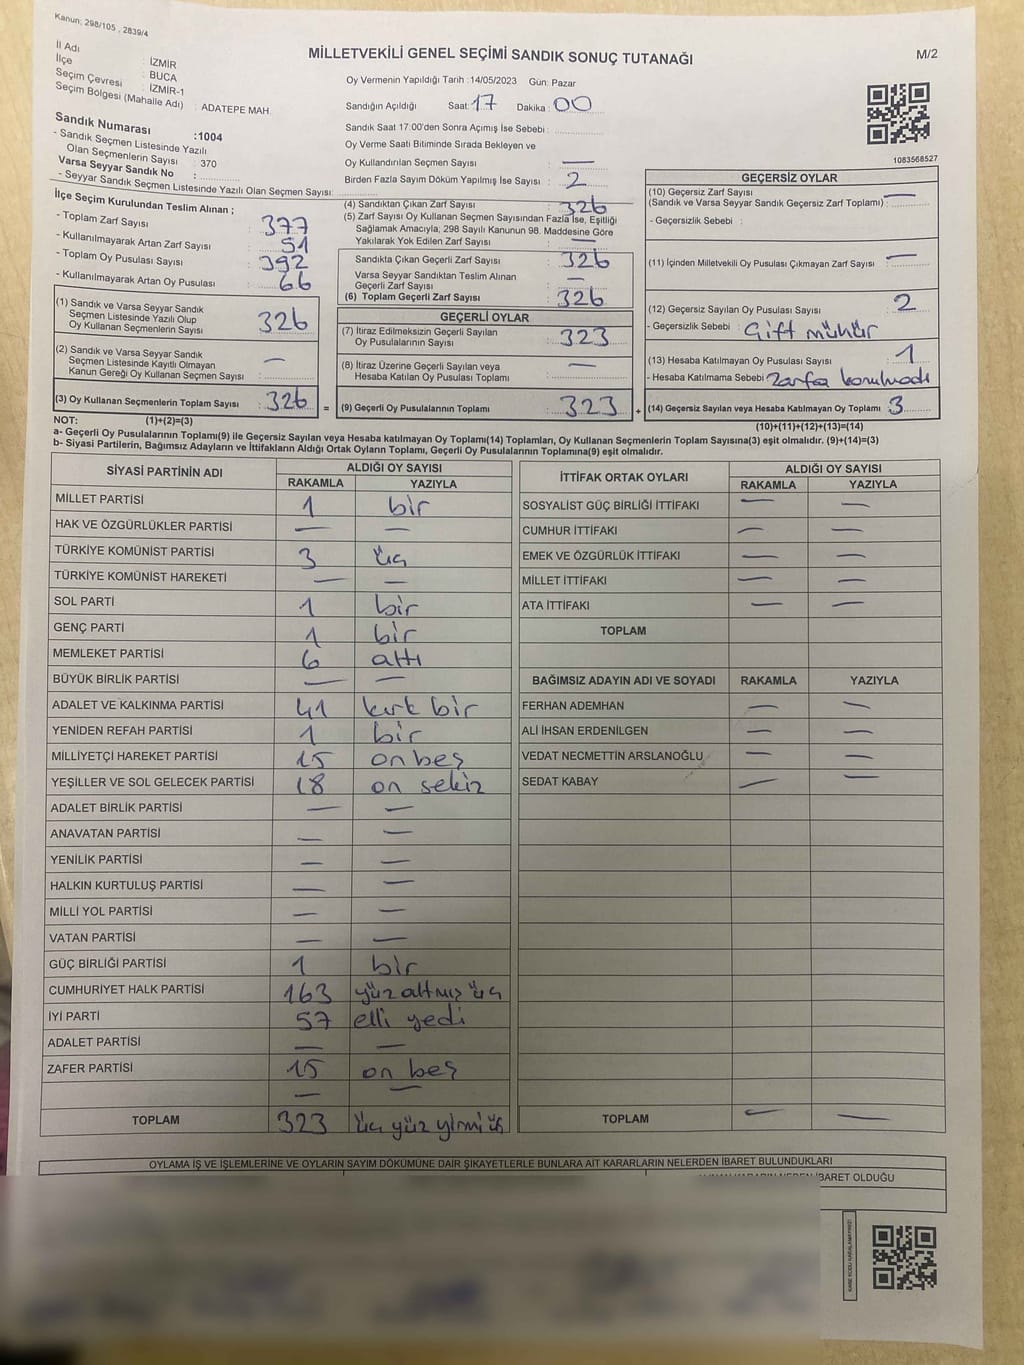 Kanun; 298/105 , 2839/4
MİLLETVEKİLİ GENEL SEÇİMİ SANDIK SONUÇ TUTANAĞI
M/2
İl Adı : İZMİR
İlçe : BUCA
Seçim Çevresi : İZMİR-1
Seçim Bölgesi (Mahalle Adı) : ADATEPE MAH.
Sandık Numarası :1004
- Sandık Seçmen Listesinde Yazılı
Olan Seçmenlerin Sayısı : 370
Varsa Seyyar Sandık No :
- Seyyar Sandık Seçmen Listesinde Yazılı Olan Seçmen Sayısı:
Oy Vermenin Yapıldığı Tarih :14/05/2023 Gün: Pazar
Sandığın Açıldığı Saat: 17 Dakika : 00
Sandık Saat 17:00'den Sonra Açımış İse Sebebi :
Oy Verme Saati Bitiminde Sırada Bekleyen ve
Oy Kullandırılan Seçmen Sayısı : —
Birden Fazla Sayım Döküm Yapılmış İse Sayısı : 2
1083568527
İlçe Seçim Kurulundan Teslim Alınan ;
- Toplam Zarf Sayısı : 377
- Kullanılmayarak Artan Zarf Sayısı : 51
- Toplam Oy Pusulası Sayısı : 392
- Kullanılmayarak Artan Oy Pusulası : 66
(1) Sandık ve Varsa Seyyar Sandık
Seçmen Listesinde Yazılı Olup
Oy Kullanan Seçmenlerin Sayısı : 326
(2) Sandık ve Varsa Seyyar Sandık
Seçmen Listesinde Kayıtlı Olmayan
Kanun Gereği Oy Kullanan Seçmen Sayısı : —
(3) Oy Kullanan Seçmenlerin Toplam Sayısı : 326 =
(4) Sandıktan Çıkan Zarf Sayısı : 326
(5) Zarf Sayısı Oy Kullanan Seçmen Sayısından Fazla İse, Eşitliği
Sağlamak Amacıyla, 298 Sayılı Kanunun 98. Maddesine Göre
Yakılarak Yok Edilen Zarf Sayısı : —
Sandıkta Çıkan Geçerli Zarf Sayısı : 326
Varsa Seyyar Sandıktan Teslim Alınan
Geçerli Zarf Sayısı : —
(6) Toplam Geçerli Zarf Sayısı : 326
GEÇERLİ OYLAR
(7) İtiraz Edilmeksizin Geçerli Sayılan
Oy Pusulalarının Sayısı : 323
(8) İtiraz Üzerine Geçerli Sayılan veya
Hesaba Katılan Oy Pusulası Toplamı : —
(9) Geçerli Oy Pusulalarının Toplamı : 323 +
GEÇERSİZ OYLAR
(10) Geçersiz Zarf Sayısı
(Sandık ve Varsa Seyyar Sandık Geçersiz Zarf Toplamı) : —
- Geçersizlik Sebebi :
(11) İçinden Milletvekili Oy Pusulası Çıkmayan Zarf Sayısı : —
(12) Geçersiz Sayılan Oy Pusulası Sayısı : 2
- Geçersizlik Sebebi : Çift mühür
(13) Hesaba Katılmayan Oy Pusulası Sayısı : 1
- Hesaba Katılmama Sebebi : Zarfa konulmadı
(14) Geçersiz Sayılan veya Hesaba Katılmayan Oy Toplamı : 3
NOT: (1)+(2)=(3)
(10)+(11)+(12)+(13)=(14)
a- Geçerli Oy Pusulalarının Toplamı(9) ile Geçersiz Sayılan veya Hesaba katılmayan Oy Toplamı(14) Toplamları, Oy Kullanan Seçmenlerin Toplam Sayısına(3) eşit olmalıdır. (9)+(14)=(3)
b- Siyasi Partilerin, Bağımsız Adayların ve İttifakların Aldığı Oyların Toplamı, Geçerli Oy Pusulalarının Toplamına(9) eşit olmalıdır.
SİYASİ PARTİNİN ADI ALDIĞI OY SAYISI
RAKAMLA YAZIYLA
MİLLET PARTİSİ 1 bir
HAK VE ÖZGÜRLÜKLER PARTİSİ — —
TÜRKİYE KOMÜNİST PARTİSİ 3 üç
TÜRKİYE KOMÜNİST HAREKETİ — —
SOL PARTİ 1 bir
GENÇ PARTİ 1 bir
MEMLEKET PARTİSİ 6 altı
BÜYÜK BİRLİK PARTİSİ — —
ADALET VE KALKINMA PARTİSİ 41 kırk bir
YENİDEN REFAH PARTİSİ 1 bir
MİLLİYETÇİ HAREKET PARTİSİ 15 on beş
YEŞİLLER VE SOL GELECEK PARTİSİ 18 on sekiz
ADALET BİRLİK PARTİSİ — —
ANAVATAN PARTİSİ — —
YENİLİK PARTİSİ — —
HALKIN KURTULUŞ PARTİSİ — —
MİLLİ YOL PARTİSİ — —
VATAN PARTİSİ — —
GÜÇ BİRLİĞİ PARTİSİ 1 bir
CUMHURİYET HALK PARTİSİ 163 yüz altmış üç
İYİ PARTİ 57 elli yedi
ADALET PARTİSİ — —
ZAFER PARTİSİ 15 on beş
— —
TOPLAM 323 üç yüz yirmi üç
İTTİFAK ORTAK OYLARI ALDIĞI OY SAYISI
RAKAMLA YAZIYLA
SOSYALİST GÜÇ BİRLİĞİ İTTİFAKI — —
CUMHUR İTTİFAKI — —
EMEK VE ÖZGÜRLÜK İTTİFAKI — —
MİLLET İTTİFAKI — —
ATA İTTİFAKI — —
TOPLAM
BAĞIMSIZ ADAYIN ADI VE SOYADI RAKAMLA YAZIYLA
FERHAN ADEMHAN — —
ALİ İHSAN ERDENİLGEN — —
VEDAT NECMETTİN ARSLANOĞLU — —
SEDAT KABAY — —
TOPLAM — —
OYLAMA İŞ VE İŞLEMLERİNE VE OYLARIN SAYIM DÖKÜMÜNE DAİR ŞİKAYETLERLE BUNLARA AİT KARARLARIN NELERDEN İBARET BULUNDUKLARI
İBARET OLDUĞU
KARE KODU KARALAMAYINIZ!